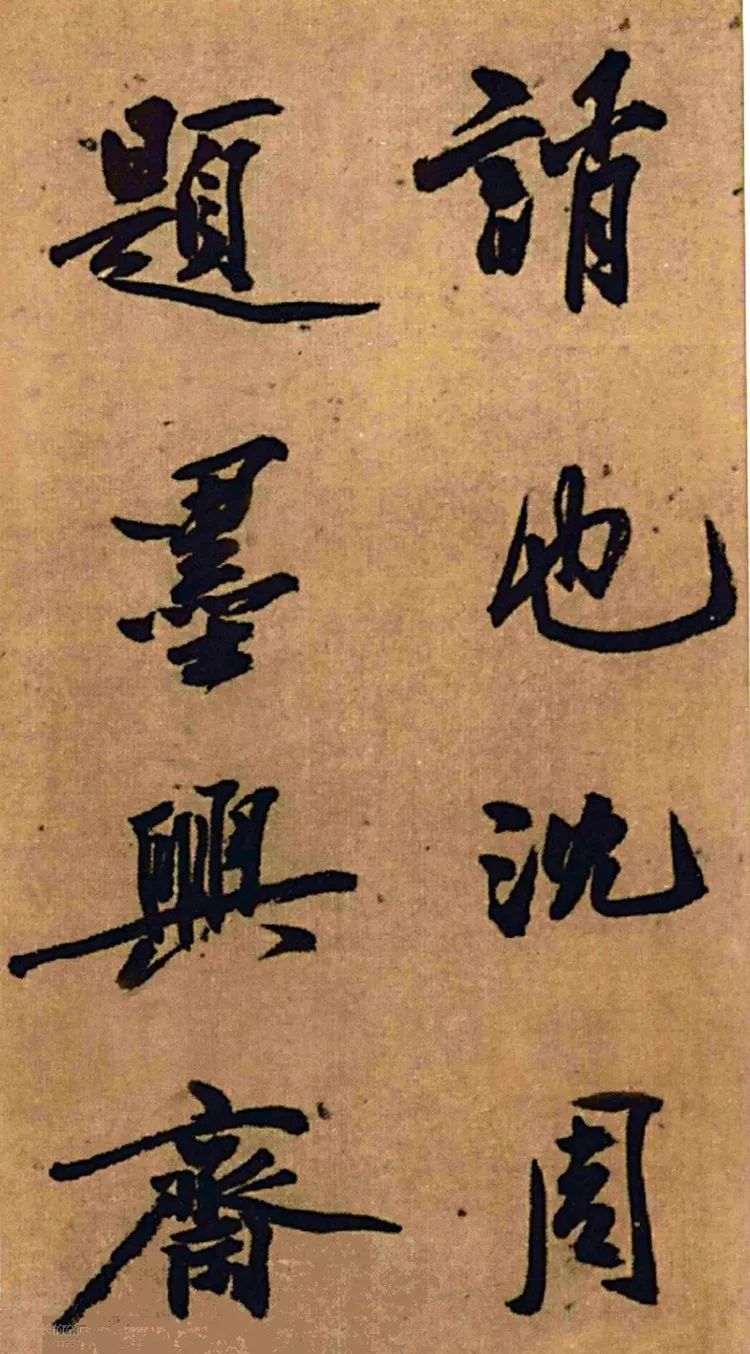 誚也沈周
題墨興齋